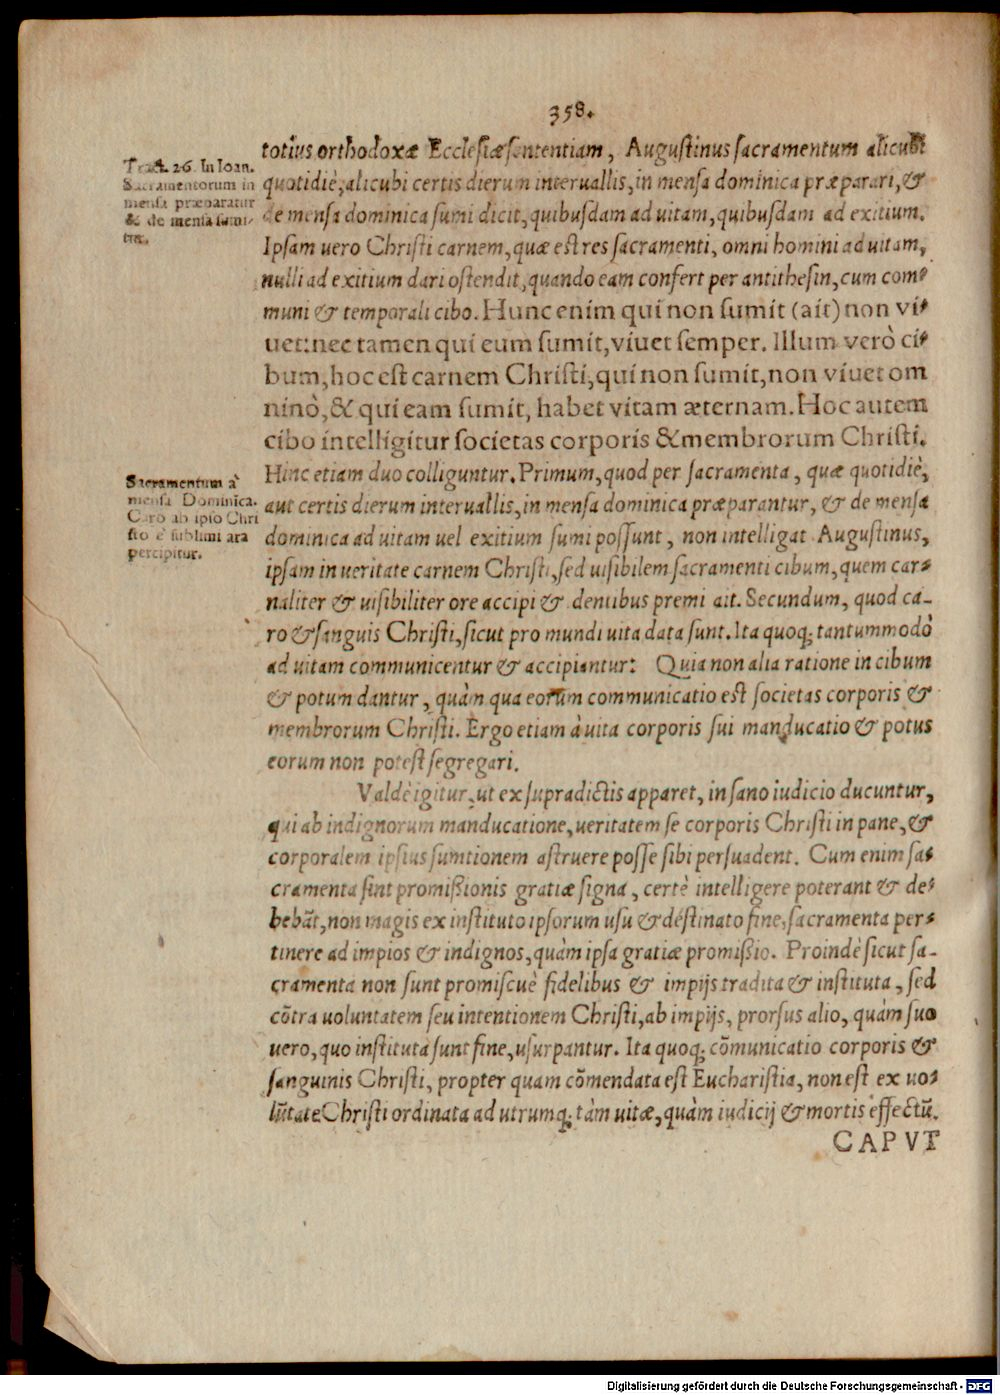 358.
totius orthodoxæ Ecclesiæ sententiam, Augustinus sacramentum alicubi
quotidiè, alicubi certis dierum interuallis, in mensa dominica præparari, &
de mensa dominica sumi dicit, quibusdam ad uitam, quibusdam ad exitium.
Ipsam uero Christi carnem, quæ est res sacramenti, omni homini ad uitam,
nulli ad exitium dari ostendit, quando eam confert per antithesin, cum com-
muni & temporali cibo. Hunc enim qui non sumit (ait) non vi-
uet: nec tamen qui eum sumit, viuet semper. Illum verò ci-
bum, hoc est carnem Christi, qui non sumit, non viuet om
ninò, & qui eam sumit, habet vitam æternam. Hoc autem
cibo intelligitur societas corporis & membrorum Christi.
Hinc etiam duo colliguntur. Primum, quod per sacramenta, quæ quotidiè,
aut certis dierum interuallis, in mensa dominica præparantur, & de mensa
dominica ad uitam uel exitium sumi possunt, non intelligat Augustinus,
ipsam in ueritate carnem Christi, sed uisibilem sacramenti cibum, quem car-
naliter & uisibiliter ore accipi & dentibus premi ait. Secundum, quod ca-
ro & sanguis Christi, sicut pro mundi uita data sunt. Ita quoq; tantummodò
ad uitam communicentur & accipiantur: Quia non alia ratione in cibum
& potum dantur, quàm qua eorum communicatio est societas corporis &
membrorum Christi. Ergo etiam à uita corporis sui manducatio & potus
eorum non potest segregari.
Valdè igitur, ut ex supradictis apparet, insano iudicio ducuntur,
qui ab indignorum manducatione, ueritatem se corporis Christi in pane, &
corporalem ipsius sumtionem astruere posse sibi persuadent. Cum enim sa-
cramenta sint promißionis gratiæ signa, certè intelligere poterant & de-
bebāt, non magis ex instituto ipsorum usu & déstinato fine, sacramenta per-
tinere ad impios & indignos, quàm ipsa gratiæ promißio. Proindè sicut sa-
cramenta non sunt promiscuè fidelibus & impijs tradita & instituta, sed
cōtra uoluntatem seu intentionem Christi, ab impijs, prorsus alio, quàm suo
uero, quo instituta sunt fine, usurpantur. Ita quoq; cōmunicatio corporis &
sanguinis Christi, propter quam cōmendata est Eucharistia, non est ex uo-
lūtate Christi ordinata ad utrumq; tàm uitæ, quàm iudicij & mortis effectū.
CAPVT
Tract. 26. In Ioan.
Sacramentorum in
mensa præparatur
& de mensa sumi-
tur.
Sacramentum à
mensa Dominica.
Caro ab ipso Chri
sto è sublimi ara
percipitur.
Digitalisierung gefördert durch die Deutsche Forschungsgemeinschaft - DFG